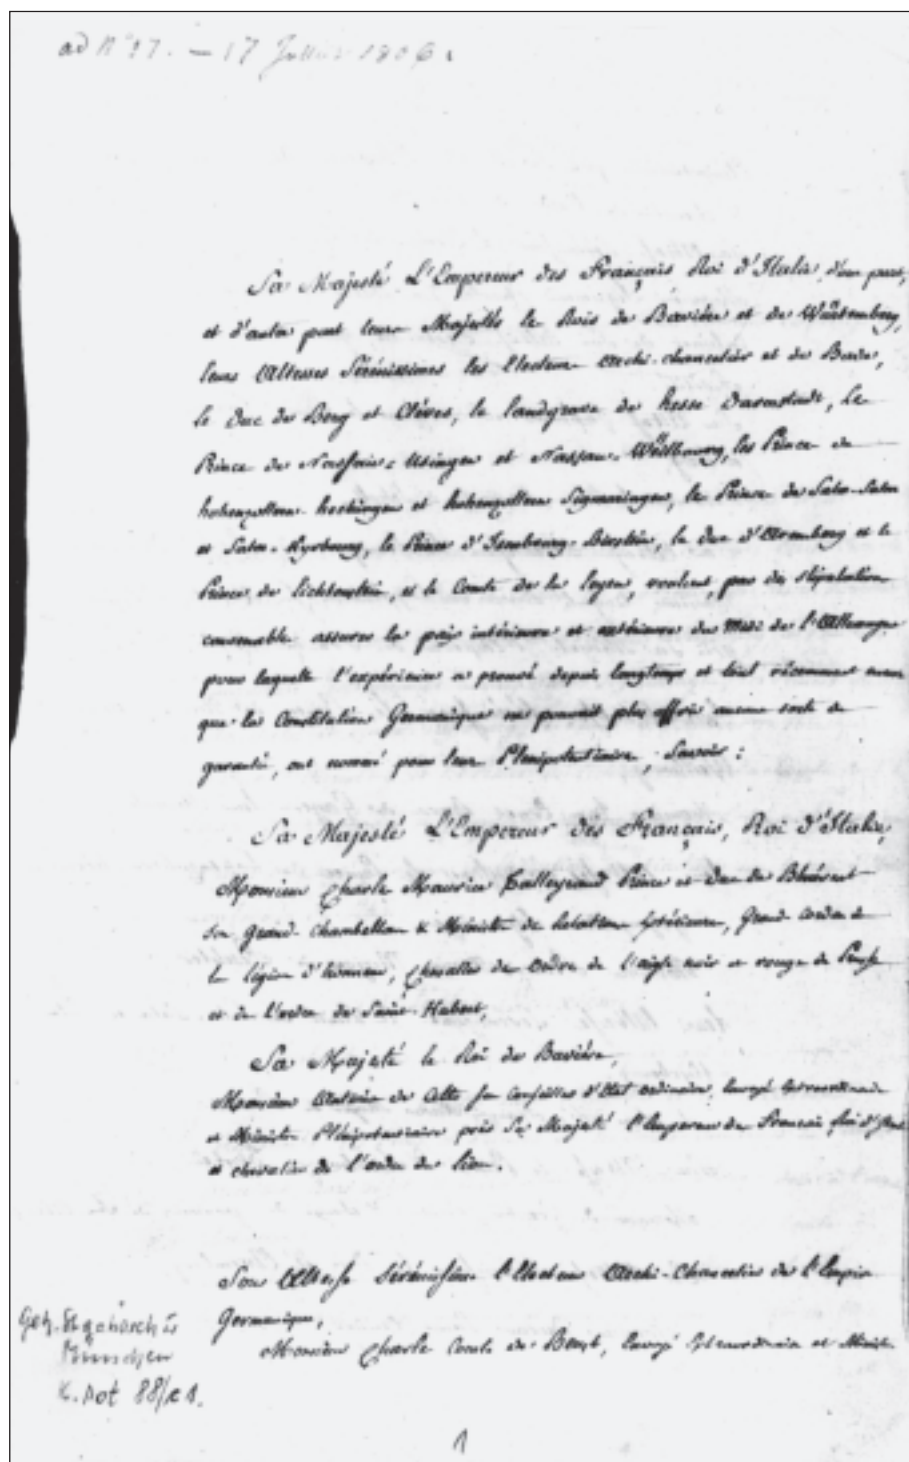 ad N° 17. — 17 Juillet 1806.
Sa Majesté L'Empereur des Français Roi d'Italie d'une part,
et d'autre part leurs Majestés les Rois de Bavière et de Würtemberg,
leurs Altesses Sérénissimes les Electeurs Archi-chancelier et de Bade,
le Duc de Berg et Clèves, le landgrave de hesse Darmstadt, le
Prince de Nassau-Usingen et Nassau-Weilbourg, les Prince de
hohenzollern-hechingen et hohenzollern Sigmaringen, le Prince de Salm-Salm
et Salm-Kyrbourg, le Prince d'Isembourg-Birstein, le duc d'Aremberg et le
Prince de lichtenstein, et le Comte de la leyen, voulant, par des stipulations
convenable assurer la paix intérieure et extérieure du midi de l'Allemagne
pour laquelle l'expérience a prouvé depuis longtemps et tout récemment encore
que la Constitution Germanique ne pouvait plus offrir aucune sorte de
garantie, ont nommé pour leurs Plénipotentiaires, Savoir:
Sa Majesté L'Empereur des Français, Roi d'Italie,
Monsieur Charle Maurice Talleyrand Prince et Duc de Bénévent
son grand Chambellan & Ministre des Relations Extérieures, Grand cordon de
la légion d'honneur, Chevalier des Ordres de l'aigle noir et rouge de Prusse
et de l'ordre de Saint-Hubert,
Sa Majesté le Roi de Bavière,
Monsieur Antoine de Cetto son Conseiller d'Etat ordinaire, Envoyé Extraordinaire
et Ministre Plénipotentiaire près Sa Majesté l'Empereur des Français Roi d'Italie
et chevalier de l'ordre du lion.
Son Altesse Sérénissime l'Electeur Archi-Chancelier de l'Empire
Germanique,
Monsieur Charle Comte de Beust, Envoyé Extraordinaire et Ministre
Geh. Staatsarchiv
München
88/
1